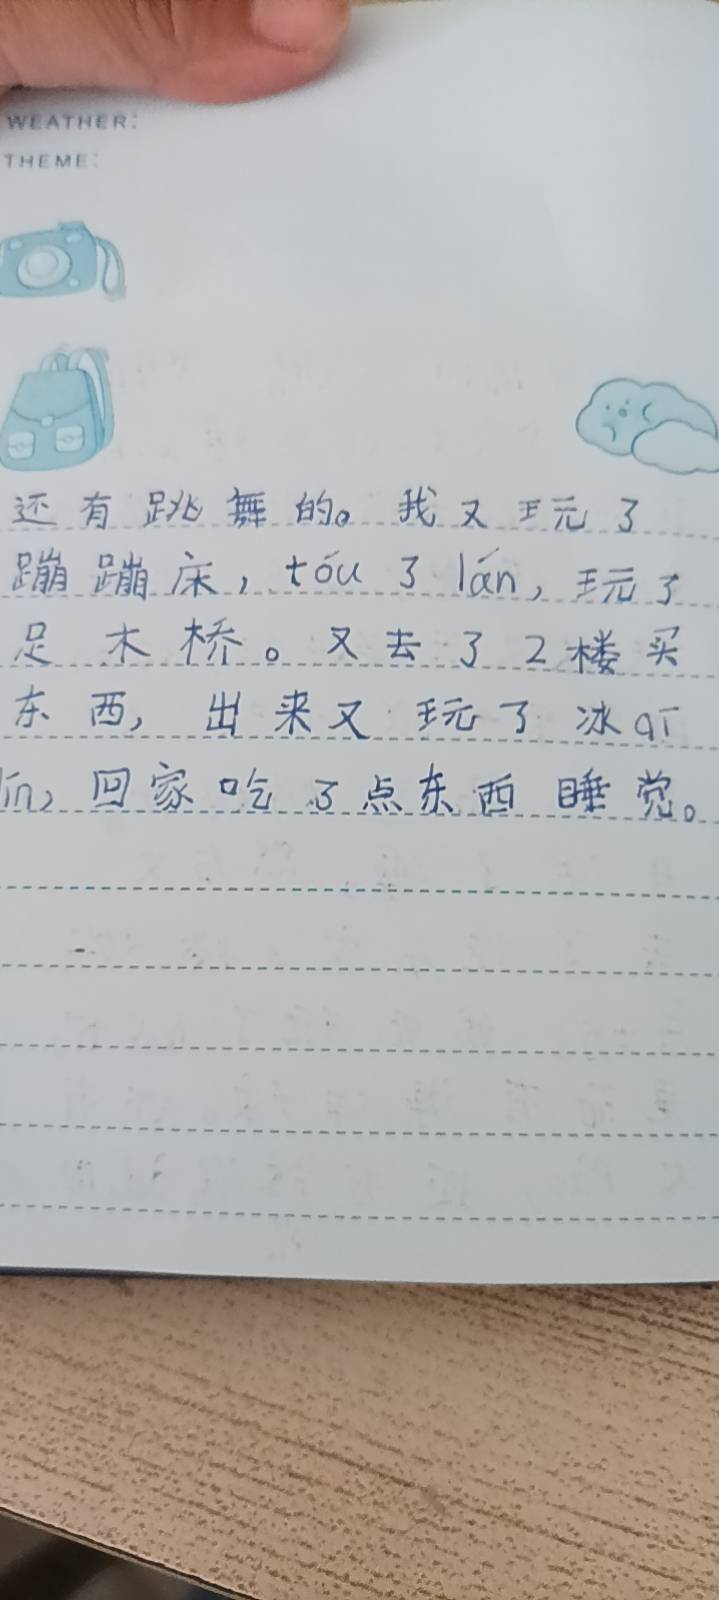 WEATHER:
THEME:
还有跳舞的。我又玩了
蹦蹦床，tóu了lán，玩了
足木桥。又去了2楼买
东西，出来又玩了冰qī
lín，回家吃了点东西睡觉。